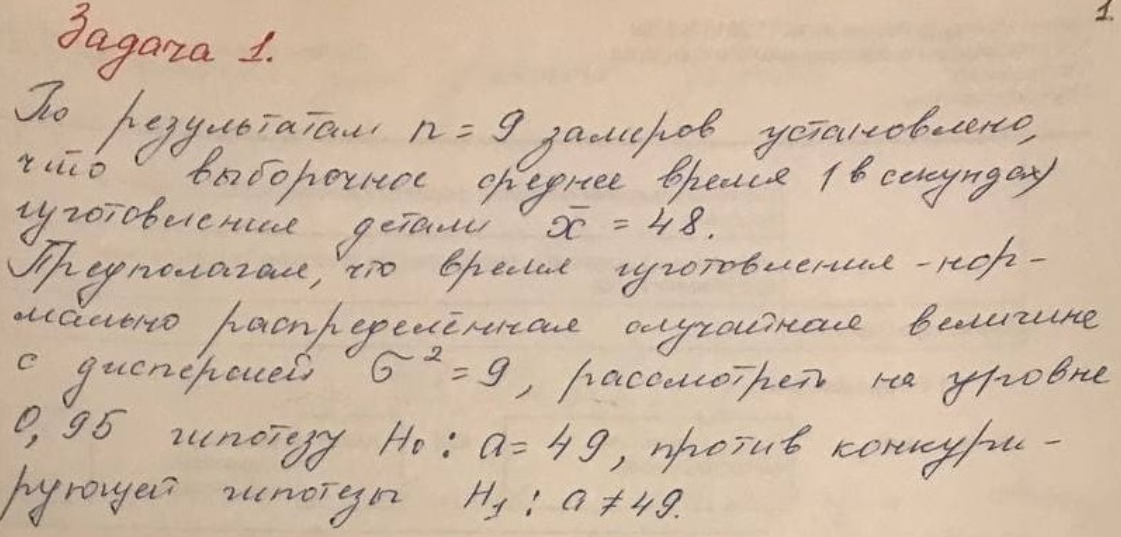 1.
Задача 1.
По результатам n = 9 замеров установлено,
что выборочное среднее время (в секундах)
изготовления детали x̄ = 48.
Предполагая, что время изготовления - нор-
мально распределённая случайная величина
с дисперсией σ² = 9, рассмотреть на уровне
0,95 гипотезу H₀ : a = 49, против конкури-
рующей гипотезы H₁ : a ≠ 49.